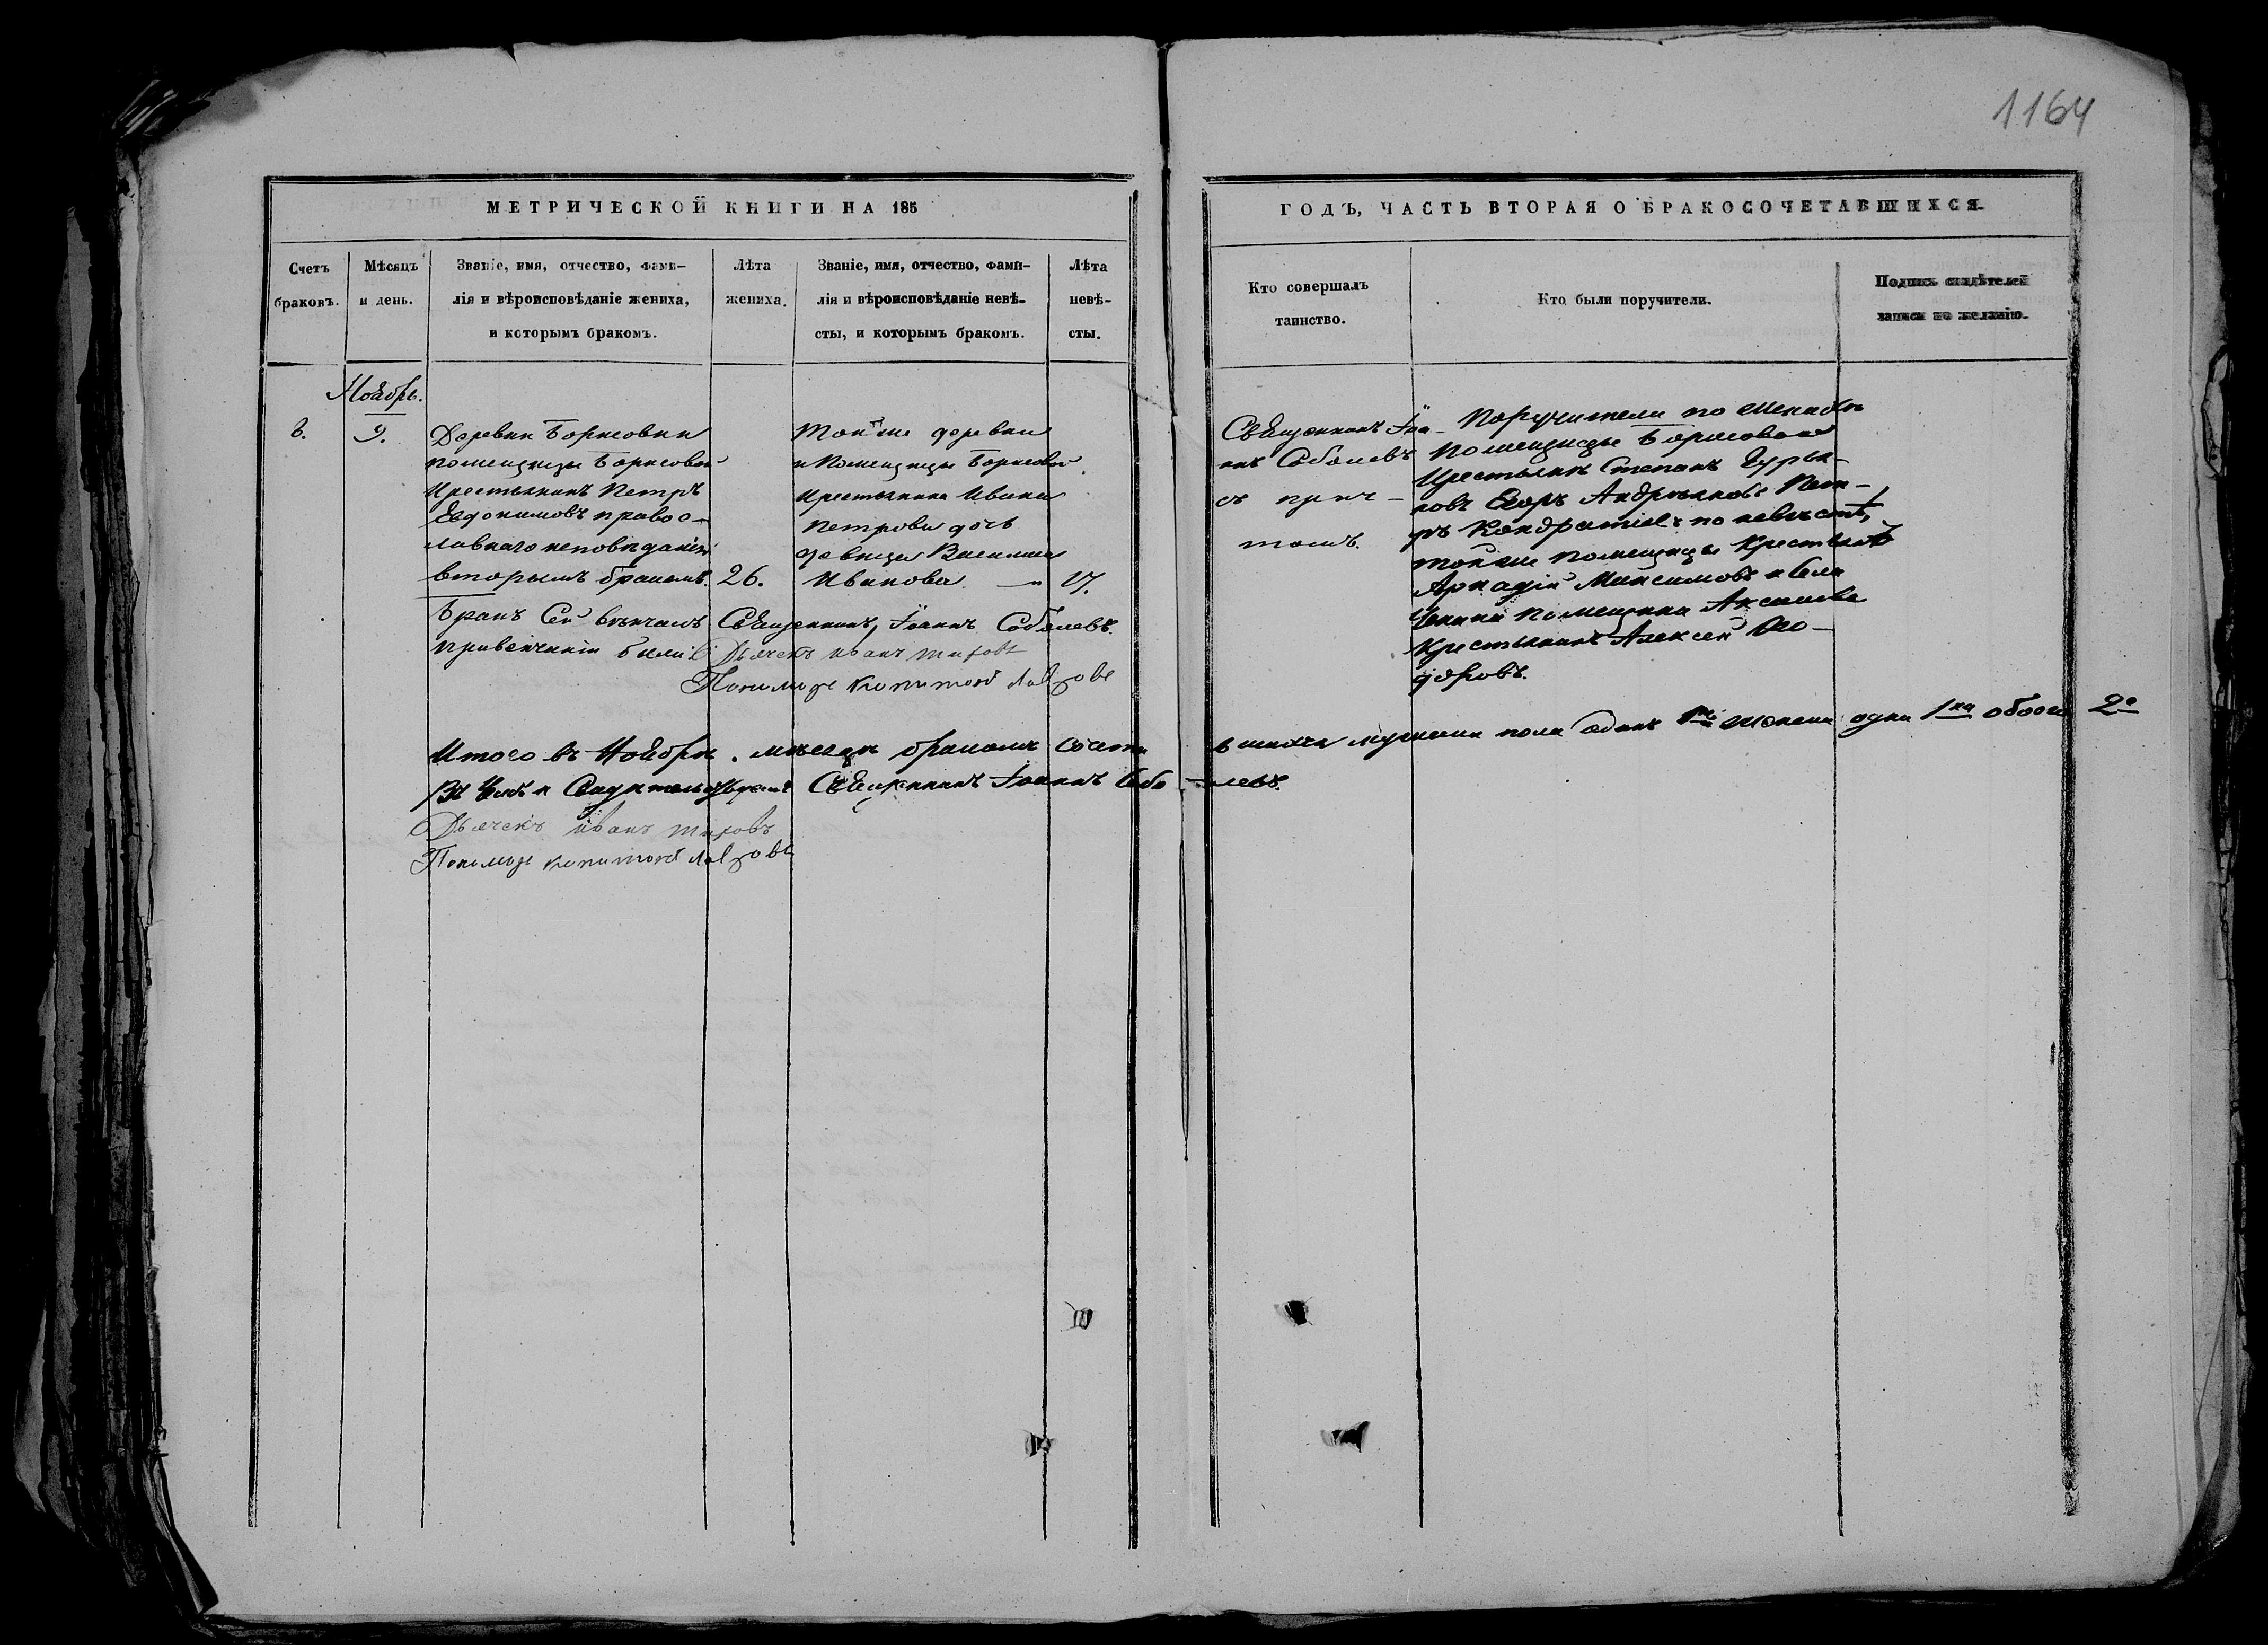 1164
МЕТРИЧЕСКОЙ КНИГИ НА 185
ГОДЪ, ЧАСТЬ ВТОРАЯ О БРАКОСОЧЕТАВШИХСЯ.
Счетъ
браковъ.
Мѣсяцъ
и день.
Званіе, имя, отчество, фами-
лія и вѣроисповѣданіе жениха,
и которымъ бракомъ.
Лѣта
жениха.
Званіе, имя, отчество, фами-
лія и вѣроисповѣданіе невѣ-
сты, и которымъ бракомъ.
Лѣта
невѣ-
сты.
Кто совершалъ
таинство.
Кто были поручители.
Подпись свидѣтелей
записи по желанію.
Ноябрь.
9.
Деревни Борисовки
помещицы Борисовой
крестьянинъ Петръ
Евдокимовъ правос-
лавнаго исповѣданія
вторымъ бракомъ.
26.
Той же деревни
и помещицы Борисовой
крестьянина Ивана
Петрова дочь
девица Василиса
Иванова
17.
Священникъ Іоа-
ннъ Соболевъ
съ прич-
томъ.
Поручители по женихѣ
помещицы Борисовой
крестьяне Степанъ Гурья-
новъ Егоръ Андрѣяновъ Пет-
ръ Кондратіевъ по невѣстѣ,
той же помещицы крестьянъ
Аркадій Максимовъ и села
помещика
крестьянинъ Алексей Фео-
доровъ.
Бракъ Сей вѣнчалъ Священникъ Іоаннъ Соболевъ.
при венчаніи были Дьячекъ Иванъ
Пономарь Капитонъ Лавровъ
Итого въ Ноябрѣ мѣсяцѣ бракомъ сочета
вшихся мужеска пола одинъ женска одна 1на обоего 2е
Священникъ Іоаннъ Собо-левъ.
Дьячекъ Иванъ
Пономарь Капитонъ Лавровъ